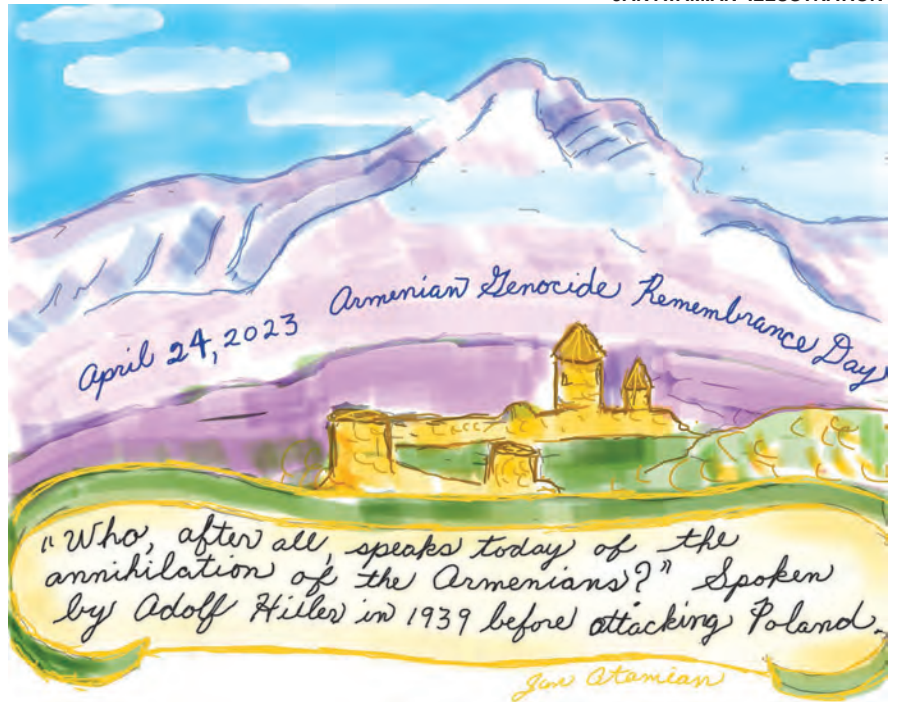 April 24, 2023 Armenian Genocide Remembrance Day
"Who, after all, speaks today of the
annihilation of the Armenians?" Spoken
by Adolf Hitler in 1939 before attacking Poland.
Jan Atamian